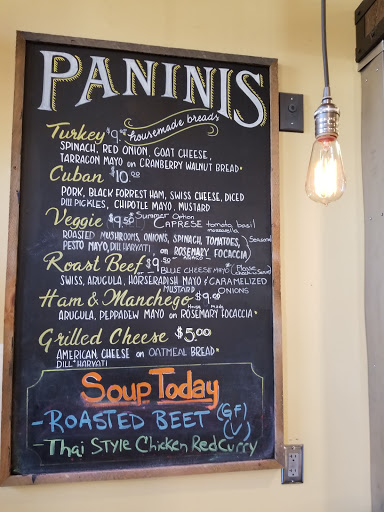 PANINIS
Turkey $9.50 housemade breads
SPINACH, RED ONION, GOAT CHEESE,
TARRAGON MAYO ON CRANBERRY WALNUT BREAD*
Cuban $10.00
PORK, BLACK FORREST HAM, SWISS CHEESE, DICED
DILL PICKLES, CHIPOTLE MAYO, MUSTARD
Veggie $9.50 *Summer Option
CAPRESE tomato, basil
mozzarella
ROASTED MUSHROOMS, ONIONS, SPINACH, TOMATOES,
PESTO MAYO, DILL HAVARTI ON ROSEMARY FOCACCIA
Roast Beef $9.50
BLUE CHEESE MAYO
SWISS, ARUGULA, HORSERADISH MAYO & CARAMELIZED
MUSTARD ONIONS
Ham & Manchego $9.00
ARUGULA, PEPPADEW MAYO ON ROSEMARY FOCACCIA*
Grilled Cheese $5.00
AMERICAN CHEESE ON OATMEAL BREAD*
DILL HAVARTI
Soup Today
-ROASTED BEET (GF)
(V)
-Thai STYLE Chicken Red Curry